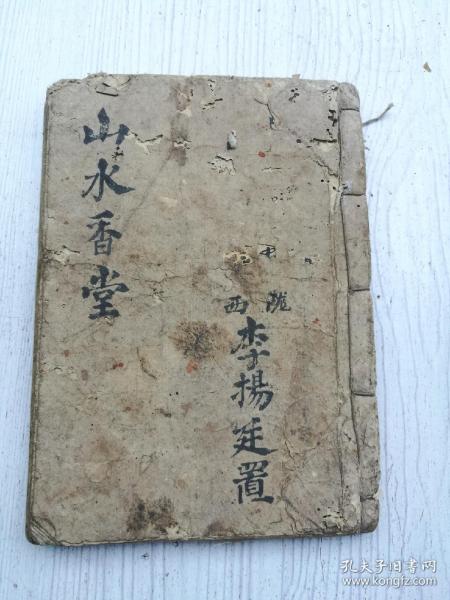 山水香堂
隴西
李揚廷置
孔夫子旧书网
www.kongfz.com